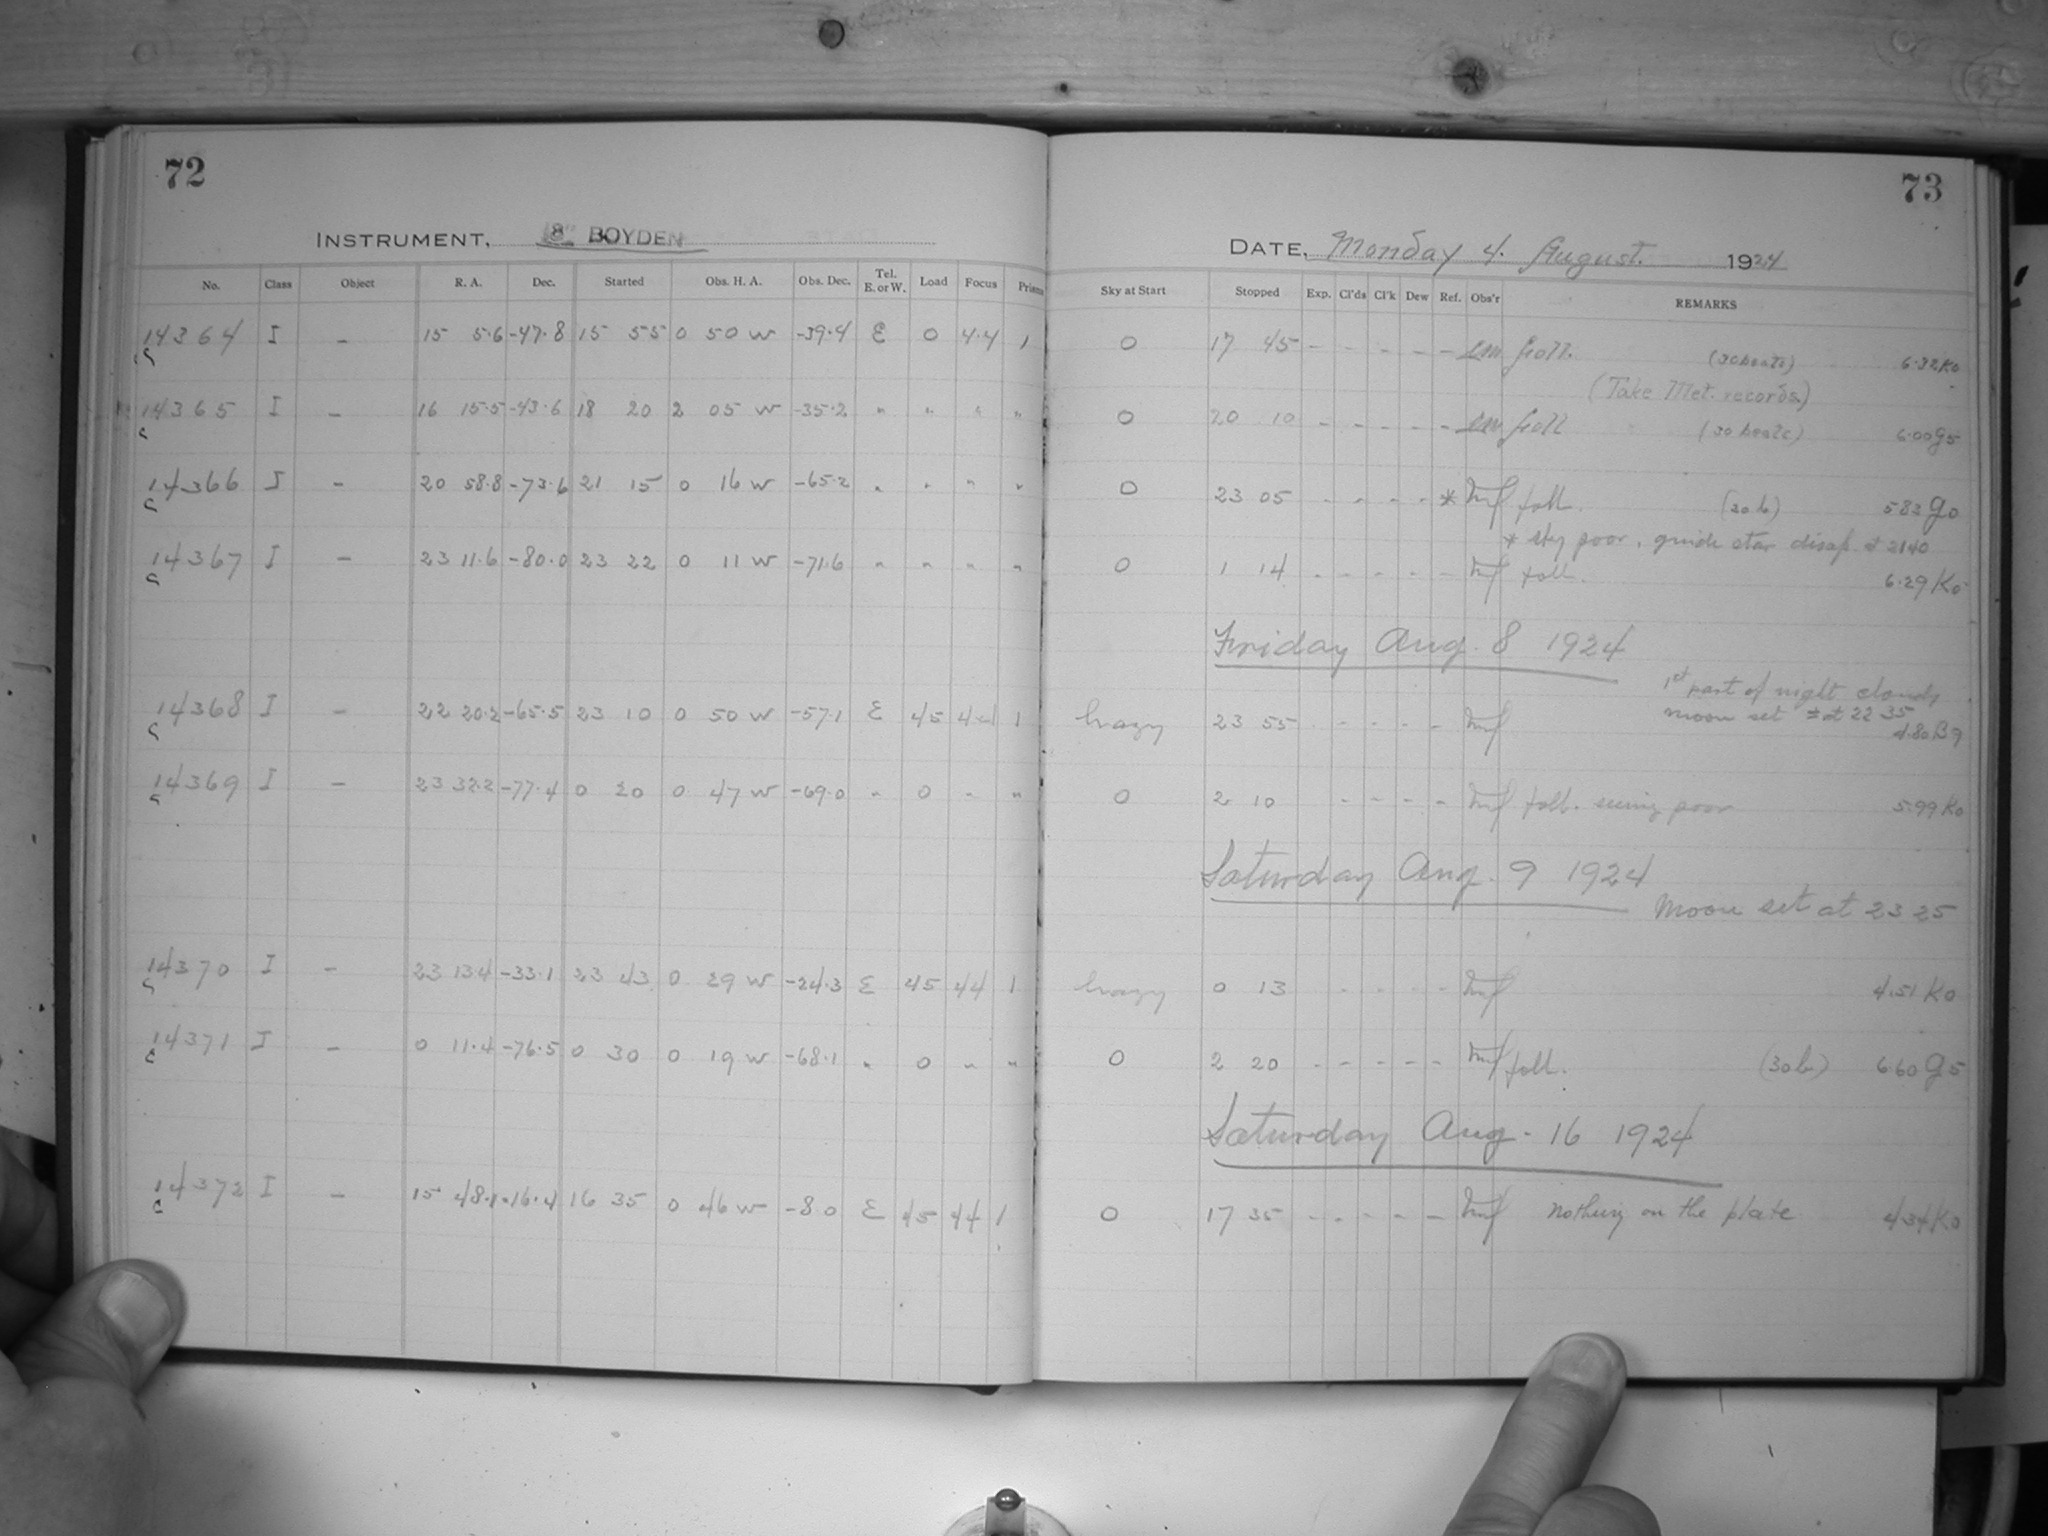 72
INSTRUMENT, 8" BOYDEN
No. Class Object R. A. Dec. Started Obs. H. A. Obs. Dec. Tel. E. or W. Load Focus Prism
14364 I - 15 5.6 -47.8 15 55 0 50 W -39.4 E 0 4.4 1
14365 I - 16 15.5 -43.6 18 20 2 05 W -35.2 " " " "
14366 I - 20 58.8 -73.6 21 15 0 16 W -65.2 " " " "
14367 I - 23 11.6 -80.0 23 22 0 11 W -71.6 " " " "
14368 I - 22 20.2 -65.5 23 10 0 50 W -57.1 E 45 4.4 1
14369 I - 23 32.2 -77.4 0 20 0 47 W -69.0 " 0 " "
14370 I - 23 13.4 -33.1 23 43 0 29 W -24.3 E 45 44 1
14371 I - 0 11.4 -76.5 0 30 0 19 W -68.1 " 0 " "
14372 I - 15 48.1 -16.4 16 35 0 46 W -8.0 E 45 44 1
73
DATE, Monday 4. August. 1924
Sky at Start Stopped Exp. Cl'ds Cl'k Dew Ref. Obs'r REMARKS
0 17 45 - - - - - foll. (30 beats) 6.32 K0
(Take Met. records)
0 20 10 - - - - - foll (30 beats) 6.00 G5
0 23 05 - - - - * foll. (30 b) 5.83 G0
* sky poor, guide star disap. at 2140
0 1 14 - - - - - foll. 6.29 K0
Friday Aug. 8 1924
1st part of night cloudy
moon set at 22 35
hazy 23 55 - - - - - 4.80 B9
0 2 10 - - - - foll. seeing poor 5.99 K0
Saturday Aug. 9 1924
Moon set at 23 25
hazy 0 13 - - - - - 4.51 K0
0 2 20 - - - - - foll. (30 b) 6.60 G5
Saturday Aug. 16 1924
0 17 35 - - - - - nothing on the plate 4.34 K0